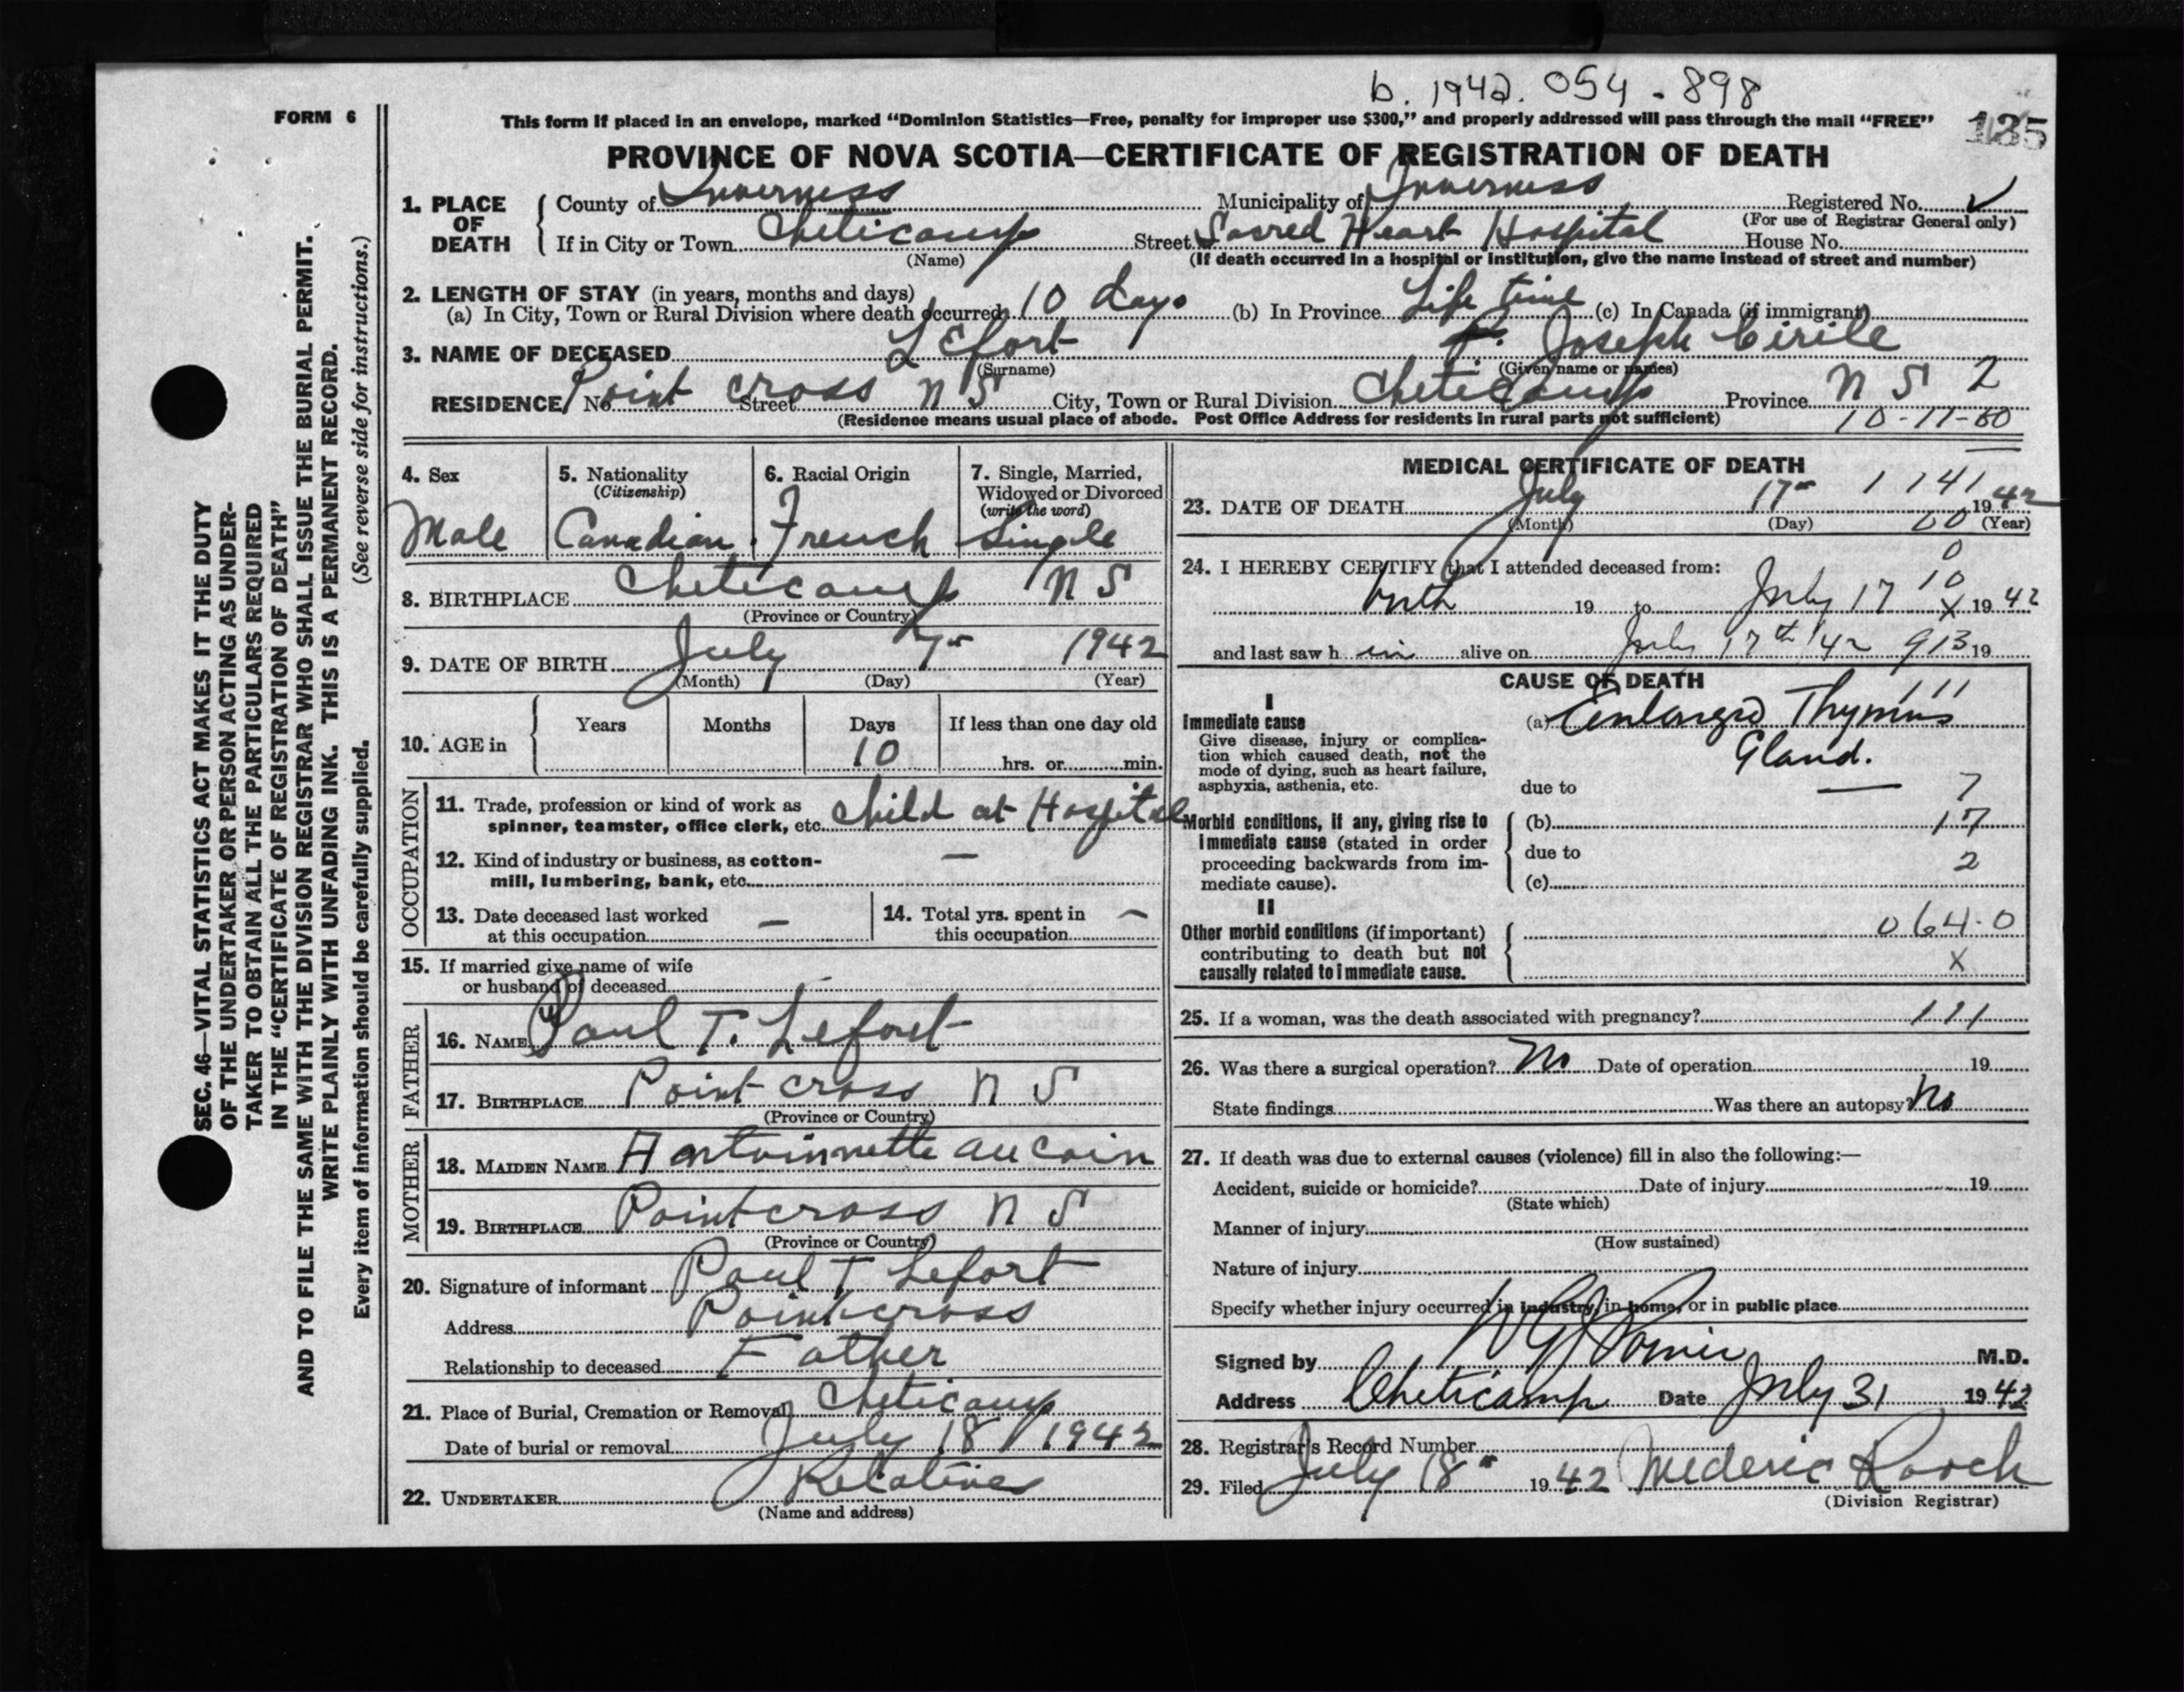 b. 1942. 054 - 898
FORM 6
This form if placed in an envelope, marked "Dominion Statistics—Free, penalty for improper use $300," and properly addressed will pass through the mail "FREE"
135
PROVINCE OF NOVA SCOTIA—CERTIFICATE OF REGISTRATION OF DEATH
1. PLACE OF DEATH
County of Inverness Municipality of Inverness Registered No. ✓
(For use of Registrar General only)
If in City or Town Cheticamp Street Sacred Heart Hospital House No.
(Name) (If death occurred in a hospital or institution, give the name instead of street and number)
2. LENGTH OF STAY (in years, months and days)
(a) In City, Town or Rural Division where death occurred 10 days (b) In Province Life time (c) In Canada (if immigrant)
3. NAME OF DECEASED LEfort Joseph Cirile
(Surname) (Given name or names)
RESIDENCE No. Point cross Street N S City, Town or Rural Division Cheticamp Province N S 2
(Residence means usual place of abode. Post Office Address for residents in rural parts not sufficient) 10-11-60
4. Sex Male
5. Nationality (Citizenship) Canadian
6. Racial Origin French
7. Single, Married, Widowed or Divorced (write the word) Single
8. BIRTHPLACE Cheticamp N S
(Province or Country)
9. DATE OF BIRTH July 7 1942
(Month) (Day) (Year)
10. AGE in Years Months Days If less than one day old
10 hrs. or min.
OCCUPATION
11. Trade, profession or kind of work as
spinner, teamster, office clerk, etc. child at Hospital
12. Kind of industry or business, as cotton-
mill, lumbering, bank, etc. —
13. Date deceased last worked
at this occupation —
14. Total yrs. spent in
this occupation —
15. If married give name of wife
or husband of deceased
FATHER
16. NAME Paul T. Lefort
17. BIRTHPLACE Point cross N S
(Province or Country)
MOTHER
18. MAIDEN NAME Aantoinnette auCoin
19. BIRTHPLACE Pointcross N S
(Province or Country)
20. Signature of informant Paul T Lefort
Address Pointcross
Relationship to deceased Father
21. Place of Burial, Cremation or Removal Cheticamp
Date of burial or removal July 18 1942
22. UNDERTAKER Relatives
(Name and address)
MEDICAL CERTIFICATE OF DEATH
1 141
23. DATE OF DEATH July 17 1942
(Month) (Day) 60 (Year)
24. I HEREBY CERTIFY that I attended deceased from: 0
10
birth 19 to July 17 X 1942
and last saw h im alive on July 17th '42 913 19
CAUSE OF DEATH
111
I
Immediate cause
Give disease, injury or complica-
tion which caused death, not the
mode of dying, such as heart failure,
asphyxia, asthenia, etc.
(a) Enlarged Thymus
Gland.
due to — 7
Morbid conditions, if any, giving rise to
immediate cause (stated in order
proceeding backwards from im-
mediate cause).
(b) 17
due to 2
(c)
II
Other morbid conditions (if important)
contributing to death but not
causally related to immediate cause.
064-0
X
25. If a woman, was the death associated with pregnancy? 111
26. Was there a surgical operation? No Date of operation 19
State findings Was there an autopsy? No
27. If death was due to external causes (violence) fill in also the following:—
Accident, suicide or homicide? Date of injury 19
(State which)
Manner of injury
(How sustained)
Nature of injury
Specify whether injury occurred in industry, in home, or in public place
Signed by M.D.
Address Cheticamp Date July 31 1942
28. Registrar's Record Number
29. Filed July 18 1942 Mederic Roach
(Division Registrar)
SEC. 46—VITAL STATISTICS ACT MAKES IT THE DUTY
OF THE UNDERTAKER OR PERSON ACTING AS UNDER-
TAKER TO OBTAIN ALL THE PARTICULARS REQUIRED
IN THE "CERTIFICATE OF REGISTRATION OF DEATH"
AND TO FILE THE SAME WITH THE DIVISION REGISTRAR WHO SHALL ISSUE THE BURIAL PERMIT.
WRITE PLAINLY WITH UNFADING INK. THIS IS A PERMANENT RECORD.
Every item of information should be carefully supplied. (See reverse side for instructions.)